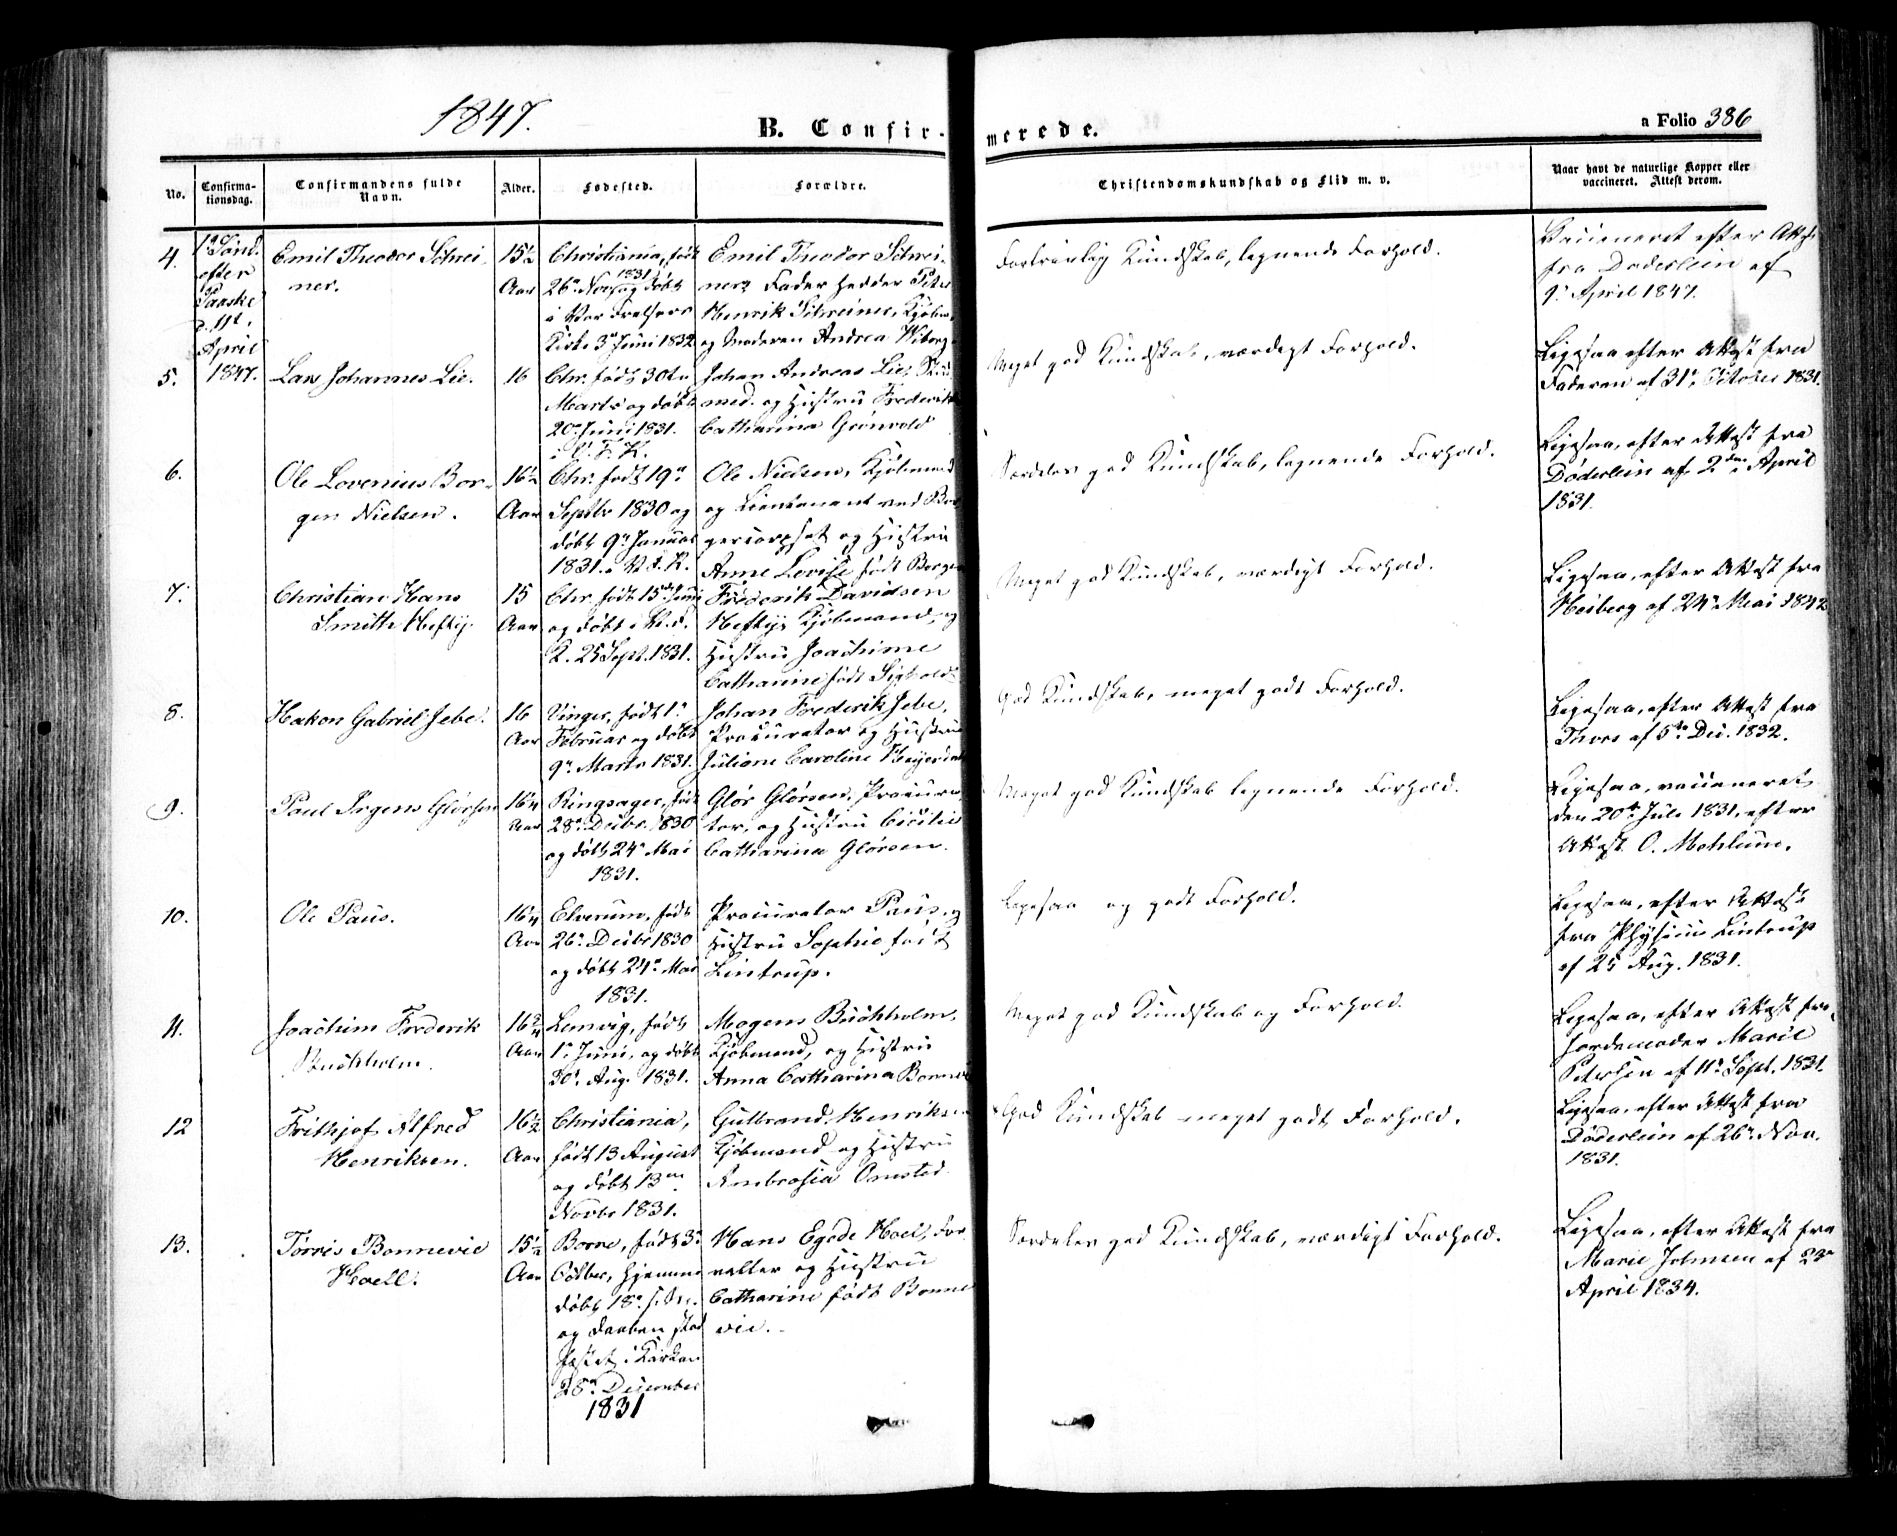 1847.
B. Confirmerede.
a Folio 386
No.
Confirmationsdag.
Confirmandens fulde Navn.
Alder.
Fødested.
Forældre.
Christendomskundskab og Flid m. v.
Naar havt de naturlige Kopper eller vaccineret. Attest derom.
1ste Sønd.
efter
Paaske
April
1847.
4.
Emil Theodor Schrei-
ner.
15½
Aar
Christiania, født
26de Nov. 1831 og døbt
i Vor Frelsers
Kirke 3de Juni 1832
Emil Theodor Schrei-
ner, Fader hedder Peter
Henrik Schreiner, Kjøbm.
og Moderen Andrea Wiborg
Fortrinlig Kundskab, lignende Forhold.
Vaccineret efter Attest
fra Døderlein af
9de April 1847.
5.
Lars Johannes Lie.
16
Chr. født 30te
Marts og døbt
20de Juni 1831.
i V. F. K.
Johan Andreas Lie, Stud.
med. og Hustru Frederikke
Catharina Grønvold
Meget god Kundskab, værdigt Forhold.
Ligesaa efter Attest fra
Faderen af 31te October 1831.
6.
Ole Lovenius Bor-
gen Nielsen.
16½
Aar
Chr. født 19de
Septbr 1830 og
døbt 9de Januar
1831 i V. F. K.
Ole Nielsen, Kjøbmand
og Lieutenant ved Bor-
gercorpset og Hustru
Anne Lovise født Borgen
Særdeles god Kundskab, lignende Forhold.
Ligesaa, efter Attest fra
Døderlein af 2den April
1831.
7.
Christian Hans
Smith Heftÿ.
15
Aar
Chr. født 15de Juni
og døbt i
R. 25 Sept. 1831.
Frederik Davidsen
Heftÿe Kjøbmand, og
Hustru Joachime
Cathanine født Sigholdt
Meget god Kundskab, værdigt Forhold.
Ligesaa, efter Attest fra
Heiberg af 24de Mai 1842
8.
Hakon Gabriel Jebe.
16
Aar
Vinger, født 1ste
Februar og døbt
9de Marts 1831.
Johan Frederik Jebe,
Procurator og Hustru
Juliane Caroline Heyerdahl
God Kundskab, meget godt Forhold.
Ligesaa, efter Attest fra
Thors af 5te Dec. 1832.
9.
Paul Irgens Glørsen
16¼
Aar
Ringsager, født
28de Decbr. 1830
og døbt 24de Mai
1831.
Glør Glørsen, Procura-
tor, og Hustru Cicilie
Catharina Glørsen.
Meget god Kundskab lignende Forhold.
Ligesaa, vaccineret
den 20de Juli 1831, efter
Attest O. Mohlum.
10.
Ole Paus.
16¼
Aar
Elverum, født
26de Decbr 1830
og døbt 24de Mai
1831.
Procurator Paus, og
Hustru Sophie født
Lintrup.
Ligesaa og godt Forhold.
Ligesaa, efter Attest
fra Physicus Lintrup
af 25 Aug. 1831.
11.
Joachim Frederik
Buchholm.
16¾
Aar
Lemvig, født
1ste Juni, og døbt
30te Aug. 1831.
Mogens Buchholm,
Kjøbmand, og Hustru
Anna Catharina Bonnevie
Meget god Kundskab og Forhold.
Ligesaa, efter Attest fra
Jordemoder Marie
Petersen af 11te Sept. 1831.
12
Frithjof Alfred
Henriksen.
16½
Aar
Christiania,
født 13 August
og døbt 13de
Novbr 1831.
Gulbrand Henriksen
Kjøbmand og Hustru
Ambrosia Omsted
God Kundskab meget godt Forhold.
Ligesaa, efter Attest fra
Døderlein af 26de Nov.
1831.
13.
Tørris Bonnevie
Hoell.
15½
Aar
Borre, født 3de
Octber, hjemme
døbt 18de s.
og Daaben stad
fæstet i Kirken
28de December
1831
Hans Egede Hoel, For-
valter og Hustru
Catharine født Bonne
vie.
Særdeles god Kundskab, værdigt Forhold.
Ligesaa, efter Attest fra
Marie Johnsen af 23de
April 1834.